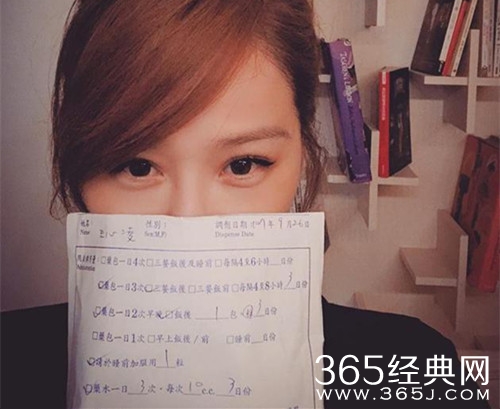 姓名: 性別: 調劑日期: 年9月26日
Name Sex Dispense Date
□藥包一日4次□三餐飯後及睡前□每隔4至6小時 日份
藥包一日3次 三餐飯後□三餐飯前□每隔4至8小時3日份
藥包一日2次早晚 飯後 1 包 3日份
□藥包一日1次 □早上飯後/前 □睡前 日份
請於睡前加服用1粒
藥水一日3次·每次10cc 3日份
365经典网
www.365J.COM